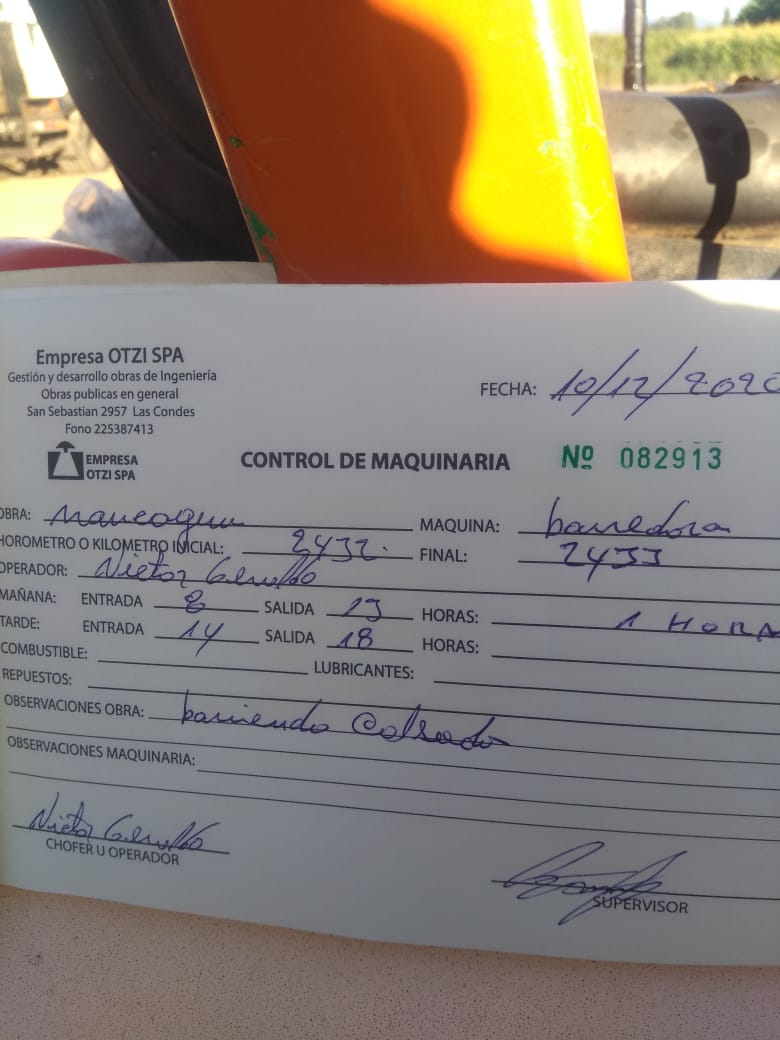 Empresa OTZI SPA
Gestión y desarrollo obras de Ingeniería
Obras publicas en general
San Sebastian 2957 Las Condes
Fono 225387413
EMPRESA
OTZI SPA
FECHA: 10/12/2020
CONTROL DE MAQUINARIA Nº 082913
OBRA: MAQUINA: barredora
HOROMETRO O KILOMETRO INICIAL: 2432. FINAL: 2433
OPERADOR:
MAÑANA: ENTRADA 8 SALIDA 13 HORAS: 1 HORA
TARDE: ENTRADA 14 SALIDA 18 HORAS:
COMBUSTIBLE: LUBRICANTES:
REPUESTOS:
OBSERVACIONES OBRA: barriendo Calsada
OBSERVACIONES MAQUINARIA:
CHOFER U OPERADOR
SUPERVISOR